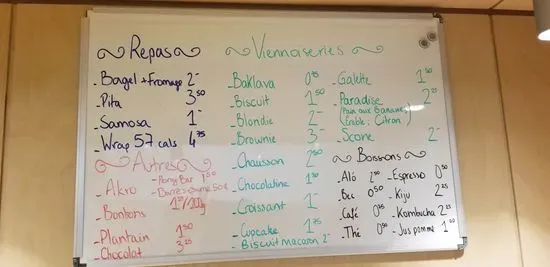 Repas
- Bagel + Fromage 2-
- Pita 3 50
- Samosa 1-
- Wrap 57 cals 4 75
Autres
- Akro
- Pony Bar 1 50
- Barres sésame 50¢
- Bonbons 1 50/100g
- Plantain 1 50
- Chocolat 3 25
Viennoiseries
- Baklava 0 75
- Biscuit 1 50
- Blondie 2-
- Brownie 3-
- Chausson 2 50
- Chocolatine 1 50
- Croissant 1-
- Cupcake 1 75
- Biscuit macaron 2-
- Galette 1 50
- Paradise 2 25
(Pain aux Bananes,
Érable, Citron)
- Scone 2-
Boissons
- Aló 2 50
- Bec 0 50
- Café 0 75
- Thé 0 50
- Espresso 0 50
- Kiju 2 25
- Kombucha 2 25
- Jus pomme 1 00